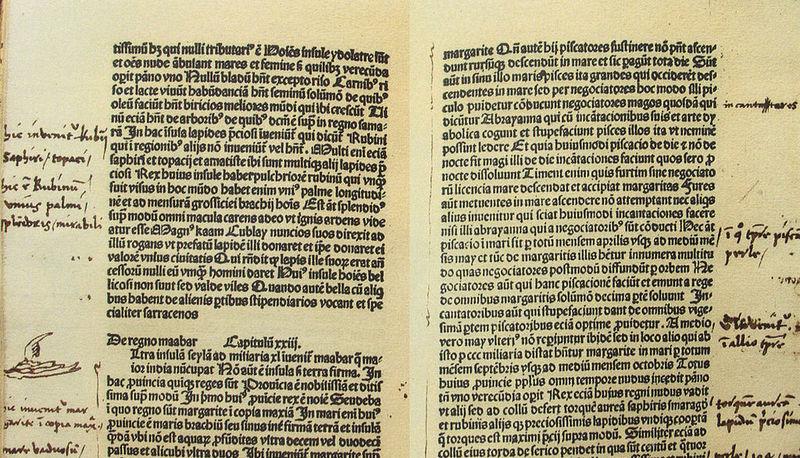 tissimū bʒ qui nulli tributari⁹ ē Hoīes insule ydolatre sūt
et oēs nude ābulant mares et femine sꝫ quilibꝫ verecūda
opit pāno vno Nullū bladū hn̄t excepto riso Carnibꝰ ri
so et lacte viuūt habūdanciā hn̄t seminū solūmō de quibꝰ
oleū faciūt hn̄t biricios meliores mūdi qui ibi crescūt Ui
nū eciā hn̄t de arboribꝰ de quibꝰ dcm̄ ē sup̄ in regno sama
rā In hac īsula lapides p̄ciosi īueniūt̄ qui dicūt̄ Rubini
qui ī regionibꝰ alijs nō inueniūt̄ vel hn̄t̄. Multi eni eciā
saphiri et topacij et amatiste ibi sunt multiqꝫ alij lapides p̄
ciosi Rex huius insule habet pulchriorē rubinū qui vnqꝫ
fuit visus in hoc mūdo habet enim vniꝰ palme longitudi
nē et ad mensurā grossiciei brachij hoīs Est āt splendidꝰ
sup̄ modū omni macula carens adeo vt ignis ardens vide
atur esse Magnꝰ kaam Cublay nuncios suos direxit ad
illū rogans vt prefatū lapidē illi donaret et ip̄e donaret ei
valorē vniꝰ ciuitatis Qui rn̄dit qꝫ lapis ille suorꝫ erat an̄
cessorū nulli eū vnqꝫ homini daret Huiꝰ insule hoies bel
licosi non sunt sed valde viles Quando autē bella cū aliq
bus habent de alienis ꝑtibus stipendiarios vocant et spe
cialiter sarracenos
De regno maabar Capitulū xxiij.
Ultra insulā seylā ad miliaria xl īueniꝰ maabar q̄ ma
ior india nūcupat̄ Nō aūt ē insula sꝫ terra firma. In
hac ꝓuincia quiqꝫ reges sūt Prouīcia ē nobilissīa et ditis
sima sup̄ modū In p̄mo huiꝰ ꝓuīcie rex ē noīe Seudeba
ī quo regno sūt margarite ī copia maxīa In mari eni huiꝰ
ꝓuincie ē maris brachiū seu sinus inē firmā terrā et insulā
q̄dā vbi nō est aquaꝝ ꝓfūditas vltra decem vel duodecī
passus et alicubi vltra duos Ibi inueniūt̄ margarite
hic inveniūtʳ Rubinj
Saphiri / topacj /
hic ē Rubinū
vnius palmi /
splēdoris / mirabilj
hic inveniūtʳ mar
garite ī copia maxī
mare vadosū /
margarite Qm̄ autē hij piscatores sustinere nō pn̄t ascen
dunt rursūqꝫ descendūt in mare et sic ꝑagūt tota die Sūt
aūt in sinu illo maris pisces ita grandes qui occiderēt des
cendentes in mare sed per negociatores hoc modo illi pi
culo ꝓuidetur cōducunt negociatores magos quosdā qui
dicūtur Abrayanna qui cū incātacionibus suis et arte dy
abolica cogunt et stupefaciunt pisces illos ita vt neminē
possint ledere Et quia huiusmodi piscacio de die ē ⁊ nō de
nocte fit magi illi de die incātaciones faciunt quos sero ꝓ
nocte dissoluunt Timent enim quis furtim sine negociato
rū licencia mare descendat et accipiat margaritas Fures
aūt metuentes in mare ascendere nō attemptant nec aliqs
alius inuenitur qui sciat huiusmodi incantaciones facere
nisi illi abrayanna qui a negociatoribꝰ sūt cōducti Hec āt
piscacio ī mari fit ꝑ totū mensem aprilis vsqꝫ ad mediū mē
sis may et tūc de margaritis illis hētur innumera multitu
do quas negociatores postmodū diffundūt ꝑ orbem Ne
gociatores aūt qui hanc piscacionē faciūt et emunt a rege
de omnibus margaritis solūmō decima ꝑtē soluunt In
cantatoribus aūt qui stupefaciunt dant de omnibus vige
simā ꝑtem piscatoribus eciā optime ꝓuidetur. A medio
vero may vlteriꝰ nō repiuntur ibidē sed in loco alio qui ab
isto ꝑ ccc miliaria distat hn̄tur margarite in mari ꝑ totum
mēsem septēbris vsqꝫ ad mediū mensem octobris Totus
huiꝰ ꝓuincie pplus omī tempore nudus incedit pāno
tn̄ vno verecūdia opit Rex eciā huius regni nudus vadit
vt alij sed ad collū defert torquē aureā saphiris smaragdꝰ
et rubinis alijsqꝫ preciosissimis lapidibus vndiqꝫ coopertā
q̄ torques est maximi p̄cij supra modū. Similiter eciā ad
collū eiꝰ corda de serico pendet in qua sūt centū et q̄tuor
in cantatores
ī qꝰ tp̄re piscā
perle /
ī allio tp̄re
torquē aureā
lapidū p̄ciosū